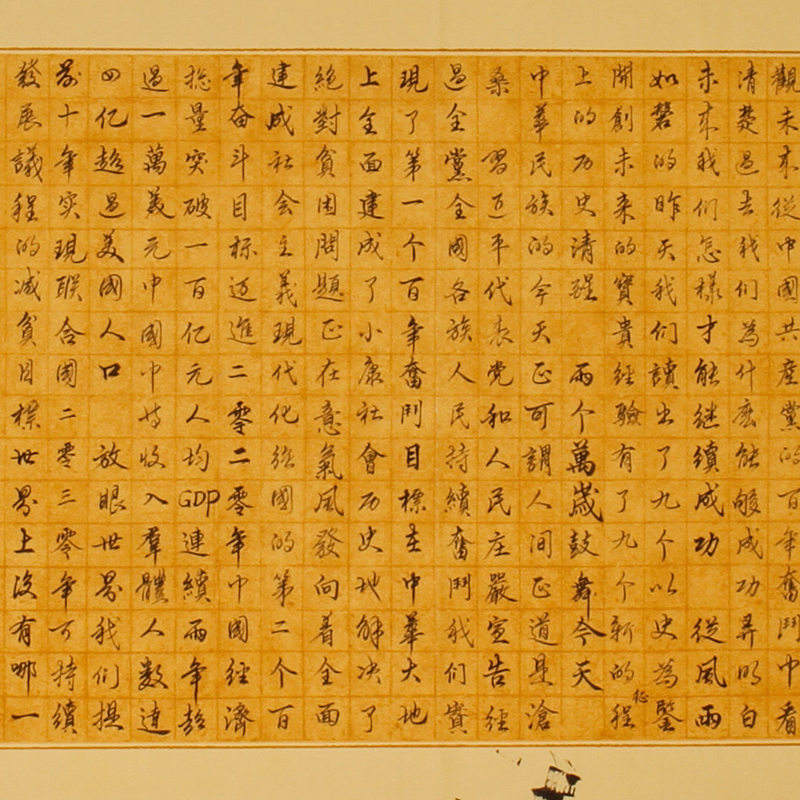 觀未來從中國共產黨的百年奮鬥中看
清楚過去我们為什麼能夠成功弄明白
未來我们怎樣才能继續成功 從風雨
如磐的昨天我们讀出了九个以史為鑒
開創未来的寶貴经驗有了九个新的征程
上的历史清醒 兩个萬歲鼓舞今天
中華民族的今天正可謂人间正道是滄
桑 習近平代表党和人民庄嚴宣告经
過全黨全國各族人民持續奮鬥我们實
現了第一个百年奮鬥目標在中華大地
上全面建成了小康社會历史地解决了
絕對貧困問題正在意氣風發向着全面
建成社会主義現代化强國的第二个百
年奋斗目标迈進二零二零年中國經濟
總量突破一百亿元人均GDP連續兩年超
過一萬美元中國中等收入羣體人数達
四亿超過美國人口 放眼世界我们提
前十年实現联合國二零三零年可持續
發展議程的减貧目標世界上沒有哪一